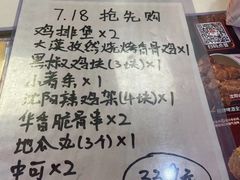 7.18 抢先购
鸡排堡×2
大漠孜然烧烤香骨鸡×1
黑椒鸡块(3块)×1
小薯条×1
沈阳辣鸡架(4块)×1
华香脆骨串×2
地瓜丸(3个)×1
中可×2